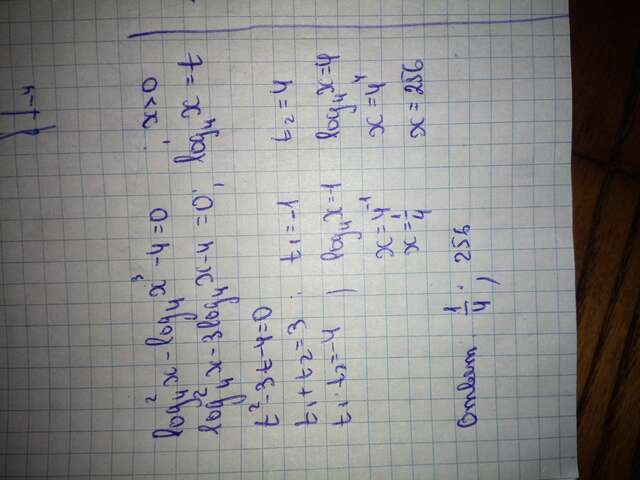 t-4
log₄²x - log₄x³ - 4 = 0 ; x>0
log²₄x - 3log₄x - 4 = 0; log₄x = t
t² - 3t - 4 = 0
t₁ + t₂ = 3 ; t₁ = -1 t₂ = 4
t₁ · t₂ = -4 ; log₄x = -1 log₄x = 4
x = 4⁻¹ x = 4⁴
x = 1/4 x = 256
Ответ 1/4 ; 256